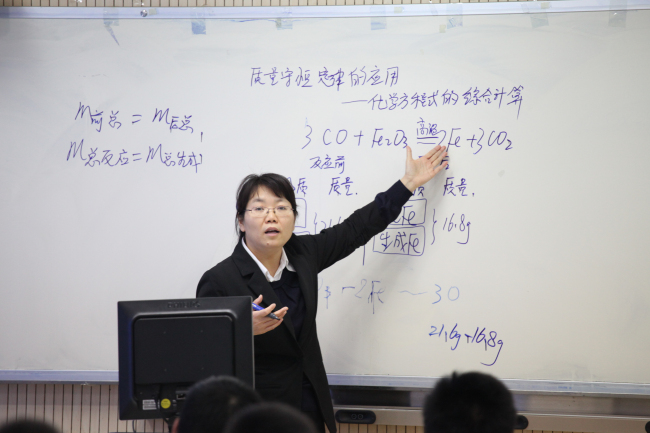 质量守恒定律的应用
——化学方程式的综合计算
m前总 = m后总,
m总反应 = m总生成
3CO + Fe₂O₃ 高温 2Fe + 3CO₂
反应前
质 质量, 质量,
21.6g
生成Fe } 16.8g
30
21.6g 16.8g